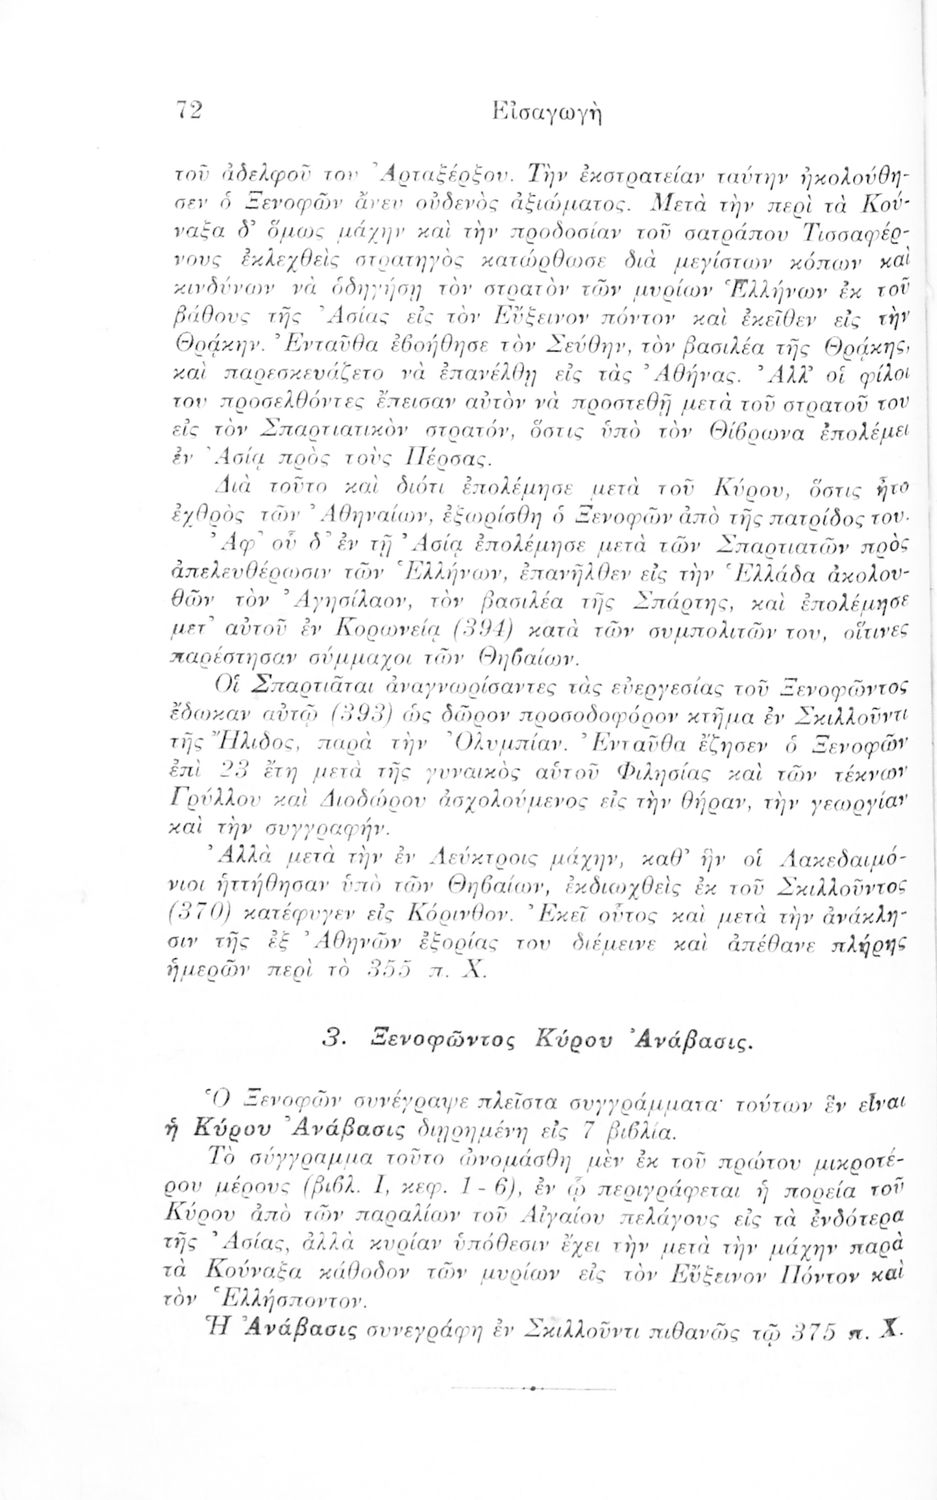 72 Εἰσαγωγὴ
τοῦ ἀδελφοῦ του Ἀρταξέρξου. Τὴν ἐκστρατείαν ταύτην ἠκολούθη-
σεν ὁ Ξενοφῶν ἄνευ οὐδενὸς ἀξιώματος. Μετὰ τὴν περὶ τὰ Κού-
ναξα δ’ ὅμως μάχην καὶ τὴν προδοσίαν τοῦ σατράπου Τισσαφέρ-
νους ἐκλεχθεὶς στρατηγὸς κατώρθωσε διὰ μεγίστων κόπων καὶ
κινδύνων νὰ ὁδηγήσῃ τὸν στρατὸν τῶν μυρίων Ἑλλήνων ἐκ τοῦ
βάθους τῆς Ἀσίας εἰς τὸν Εὔξεινον πόντον καὶ ἐκεῖθεν εἰς τὴν
Θράκην. Ἐνταῦθα ἐβοήθησε τὸν Σεύθην, τὸν βασιλέα τῆς Θράκης,
καὶ παρεσκευάζετο νὰ ἐπανέλθῃ εἰς τὰς Ἀθήνας. Ἀλλ’ οἱ φίλοι
του προσελθόντες ἔπεισαν αὐτὸν νὰ προστεθῇ μετὰ τοῦ στρατοῦ του
εἰς τὸν Σπαρτιατικὸν στρατόν, ὅστις ὑπὸ τὸν Θίβρωνα ἐπολέμει
ἐν Ἀσίᾳ πρὸς τοὺς Πέρσας.
Διὰ τοῦτο καὶ διότι ἐπολέμησε μετὰ τοῦ Κύρου, ὅστις ἦτο
ἐχθρὸς τῶν Ἀθηναίων, ἐξωρίσθη ὁ Ξενοφῶν ἀπὸ τῆς πατρίδος του.
Ἀφ’ οὗ δ’ ἐν τῇ Ἀσίᾳ ἐπολέμησε μετὰ τῶν Σπαρτιατῶν πρὸς
ἀπελευθέρωσιν τῶν Ἑλλήνων, ἐπανῆλθεν εἰς τὴν Ἑλλάδα ἀκολου-
θῶν τὸν Ἀγησίλαον, τὸν βασιλέα τῆς Σπάρτης, καὶ ἐπολέμησε
μετ’ αὐτοῦ ἐν Κορωνείᾳ (394) κατὰ τῶν συμπολιτῶν του, οἵτινες
παρέστησαν σύμμαχοι τῶν Θηβαίων.
Οἱ Σπαρτιᾶται ἀναγνωρίσαντες τὰς εὐεργεσίας τοῦ Ξενοφῶντος
ἔδωκαν αὐτῷ (393) ὡς δῶρον προσοδοφόρον κτῆμα ἐν Σκιλλοῦντι
τῆς Ἤλιδος, παρὰ τὴν Ὀλυμπίαν. Ἐνταῦθα ἔζησεν ὁ Ξενοφῶν
ἐπὶ 23 ἔτη μετὰ τῆς γυναικὸς αὑτοῦ Φιλησίας καὶ τῶν τέκνων
Γρύλλου καὶ Διοδώρου ἀσχολούμενος εἰς τὴν θήραν, τὴν γεωργίαν
καὶ τὴν συγγραφήν.
Ἀλλὰ μετὰ τὴν ἐν Λεύκτροις μάχην, καθ’ ἣν οἱ Λακεδαιμό-
νιοι ἡττήθησαν ὑπὸ τῶν Θηβαίων, ἐκδιωχθεὶς ἐκ τοῦ Σκιλλοῦντος
(370) κατέφυγεν εἰς Κόρινθον. Ἐκεῖ οὗτος καὶ μετὰ τὴν ἀνάκλη-
σιν τῆς ἐξ Ἀθηνῶν ἐξορίας του διέμεινε καὶ ἀπέθανε πλήρης
ἡμερῶν περὶ τὸ 355 π. Χ.
3. Ξενοφῶντος Κύρου Ἀνάβασις.
Ὁ Ξενοφῶν συνέγραψε πλεῖστα συγγράμματα· τούτων ἓν εἶναι
ἡ Κύρου Ἀνάβασις διῃρημένη εἰς 7 βιβλία.
Τὸ σύγγραμμα τοῦτο ὠνομάσθη μὲν ἐκ τοῦ πρώτου μικροτέ-
ρου μέρους (βιβλ. Ι, κεφ. 1 - 6), ἐν ᾧ περιγράφεται ἡ πορεία τοῦ
Κύρου ἀπὸ τῶν παραλίων τοῦ Αἰγαίου πελάγους εἰς τὰ ἐνδότερα
τῆς Ἀσίας, ἀλλὰ κυρίαν ὑπόθεσιν ἔχει τὴν μετὰ τὴν μάχην παρὰ
τὰ Κούναξα κάθοδον τῶν μυρίων εἰς τὸν Εὔξεινον Πόντον καὶ
τὸν Ἑλλήσποντον.
Ἡ Ἀνάβασις συνεγράφη ἐν Σκιλλοῦντι πιθανῶς τῷ 375 π. Χ.